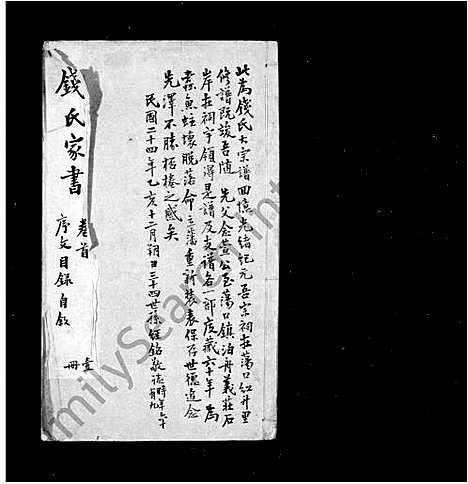 此為錢氏大宗譜回憶光緒紀元吾宗祠在蕩口紅井里
修譜既竣吾隨 先父念萱公至蕩口鎮泊舟義莊石
岸在祠宇領得是譜及支譜各一部庋藏六十年為
蠹魚蛀壞脫落命立藩重新裝表保存世德追念
先澤不勝桮棬之感矣
民國二十四年乙亥十二月朔日三十四世孫 銘敬誌時年六十有九
錢氏家書 卷首
序文目錄自敘
壹冊
milySearch.int